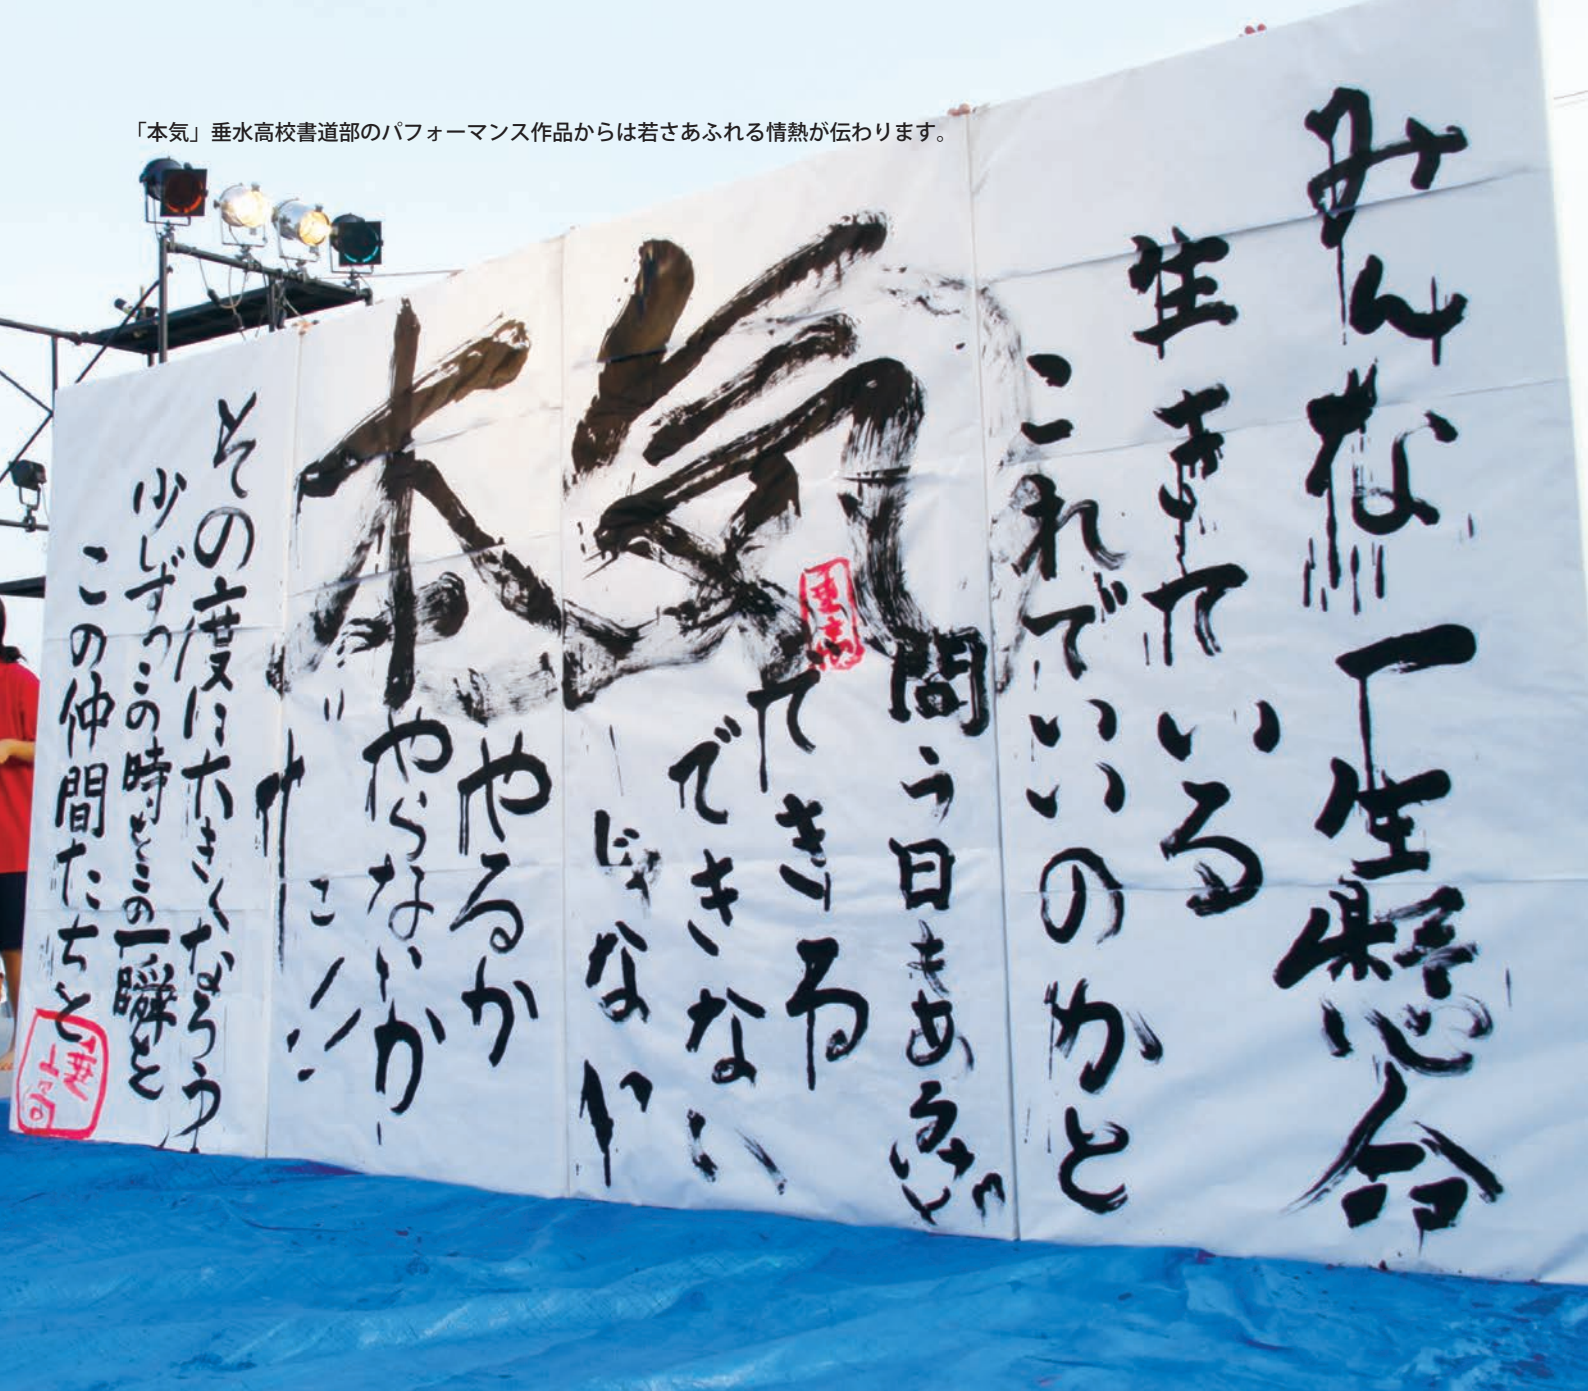 「本気」垂水高校書道部のパフォーマンス作品からは若さあふれる情熱が伝わります。
みんな一生懸命
生きている
これでいいのかと
問う日もあるが
できる
できない
じゃない
本気
やるか
やらないか
その度に大きくなろう
少しずつこの時とこの一瞬と
この仲間たちと
垂高